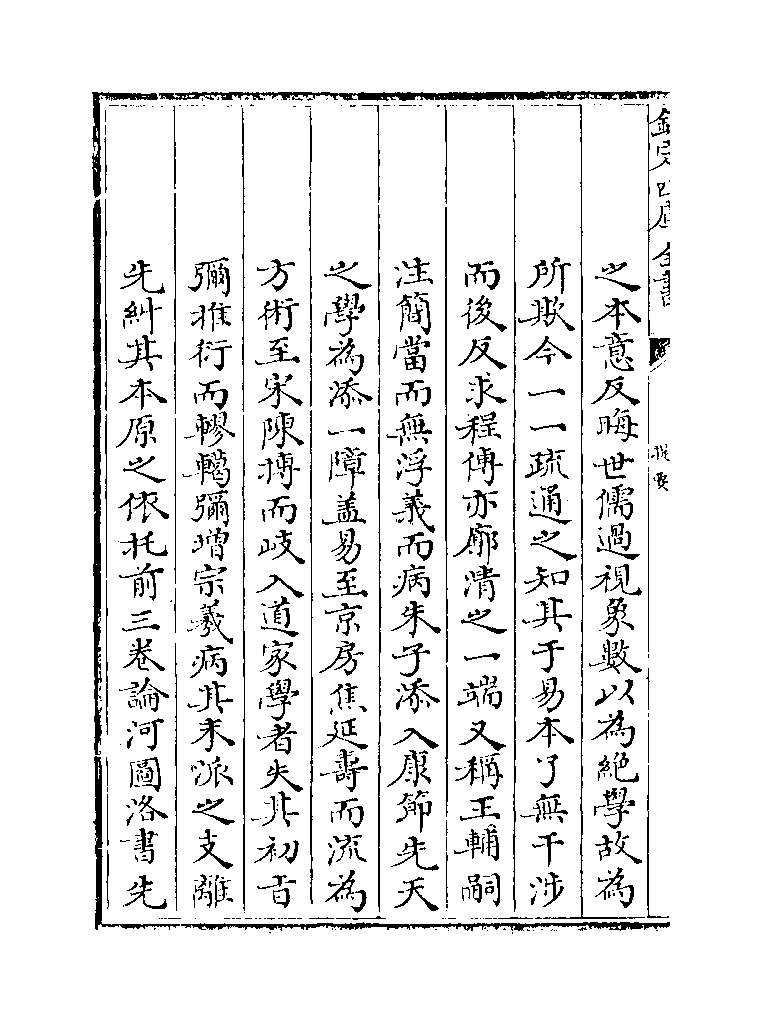 欽定四庫全書
提要
之本意反晦世儒過視象數以為絶學故為
所欺今一一疏通之知其于易本了無干涉
而後反求程傳亦廓清之一端又稱王輔嗣
注簡當而無浮義而病朱子添入康節先天
之學為添一障蓋易至京房焦延壽而流為
方術至宋陳摶而岐入道家學者失其初旨
彌推衍而轇轕彌增宗羲病其末派之支離
先糾其本原之依托前三卷論河圖洛書先